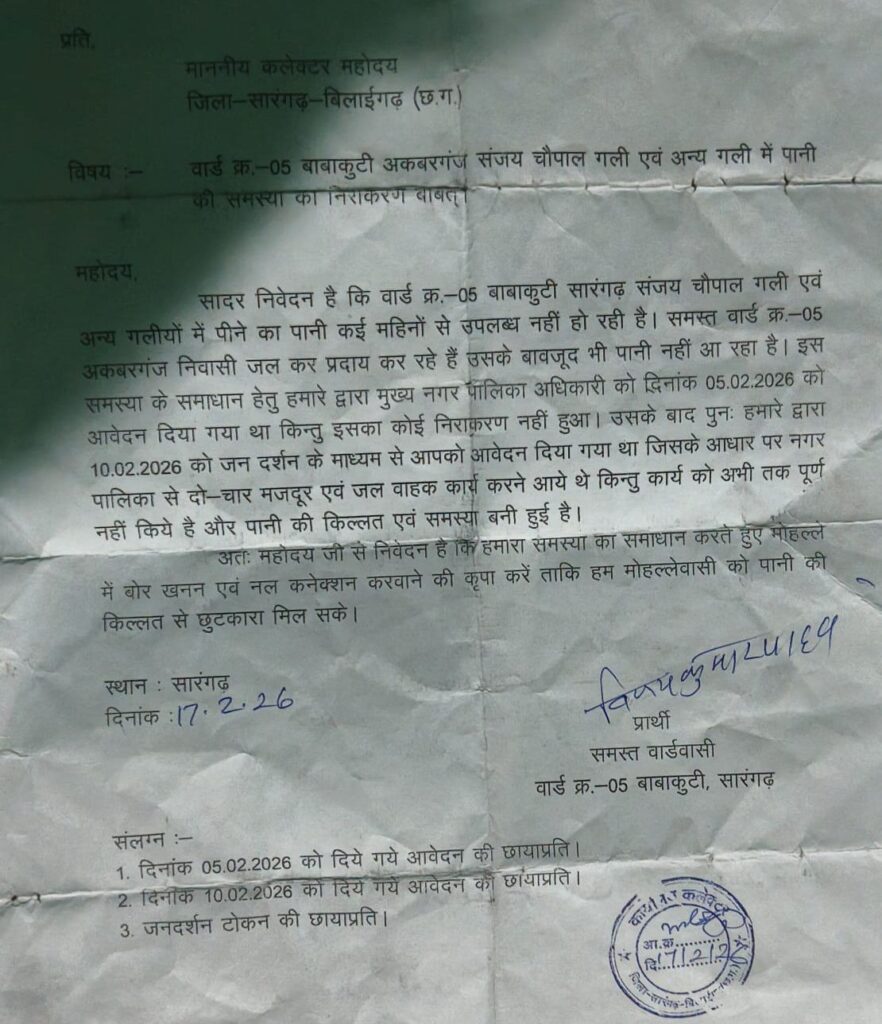 प्रति,
माननीय कलेक्टर महोदय
जिला–सारंगढ़–बिलाईगढ़ (छ.ग.)
विषय :– वार्ड क्र.–05 बाबाकुटी अकबरगंज संजय चौपाल गली एवं अन्य गली में पानी
की समस्या का निराकरण बाबत्।
महोदय,
सादर निवेदन है कि वार्ड क्र.–05 बाबाकुटी सारंगढ़ संजय चौपाल गली एवं
अन्य गलीयों में पीने का पानी कई महिनों से उपलब्ध नहीं हो रही है। समस्त वार्ड क्र.–05
अकबरगंज निवासी जल कर प्रदाय कर रहे हैं उसके बावजूद भी पानी नहीं आ रहा है। इस
समस्या के समाधान हेतु हमारे द्वारा मुख्य नगर पालिका अधिकारी को दिनांक 05.02.2026 को
आवेदन दिया गया था किन्तु इसका कोई निराकरण नहीं हुआ। उसके बाद पुनः हमारे द्वारा
10.02.2026 को जन दर्शन के माध्यम से आपको आवेदन दिया गया था जिसके आधार पर नगर
पालिका से दो–चार मजदूर एवं जल वाहक कार्य करने आये थे किन्तु कार्य को अभी तक पूर्ण
नहीं किये है और पानी की किल्लत एवं समस्या बनी हुई है।
अतः महोदय जी से निवेदन है कि हमारा समस्या का समाधान करते हुए मोहल्ले
में बोर खनन एवं नल कनेक्शन करवाने की कृपा करें ताकि हम मोहल्लेवासी को पानी की
किल्लत से छुटकारा मिल सके।
स्थान : सारंगढ़
दिनांक : 17.2.26
विजय कुमार
प्रार्थी
समस्त वार्डवासी
वार्ड क्र.–05 बाबाकुटी, सारंगढ़
संलग्न :–
1. दिनांक 05.02.2026 को दिये गये आवेदन की छायाप्रति।
2. दिनांक 10.02.2026 को दिये गये आवेदन की छायाप्रति।
3. जनदर्शन टोकन की छायाप्रति।
कलेक्टर
आ.क्र.
दि.17/2/2